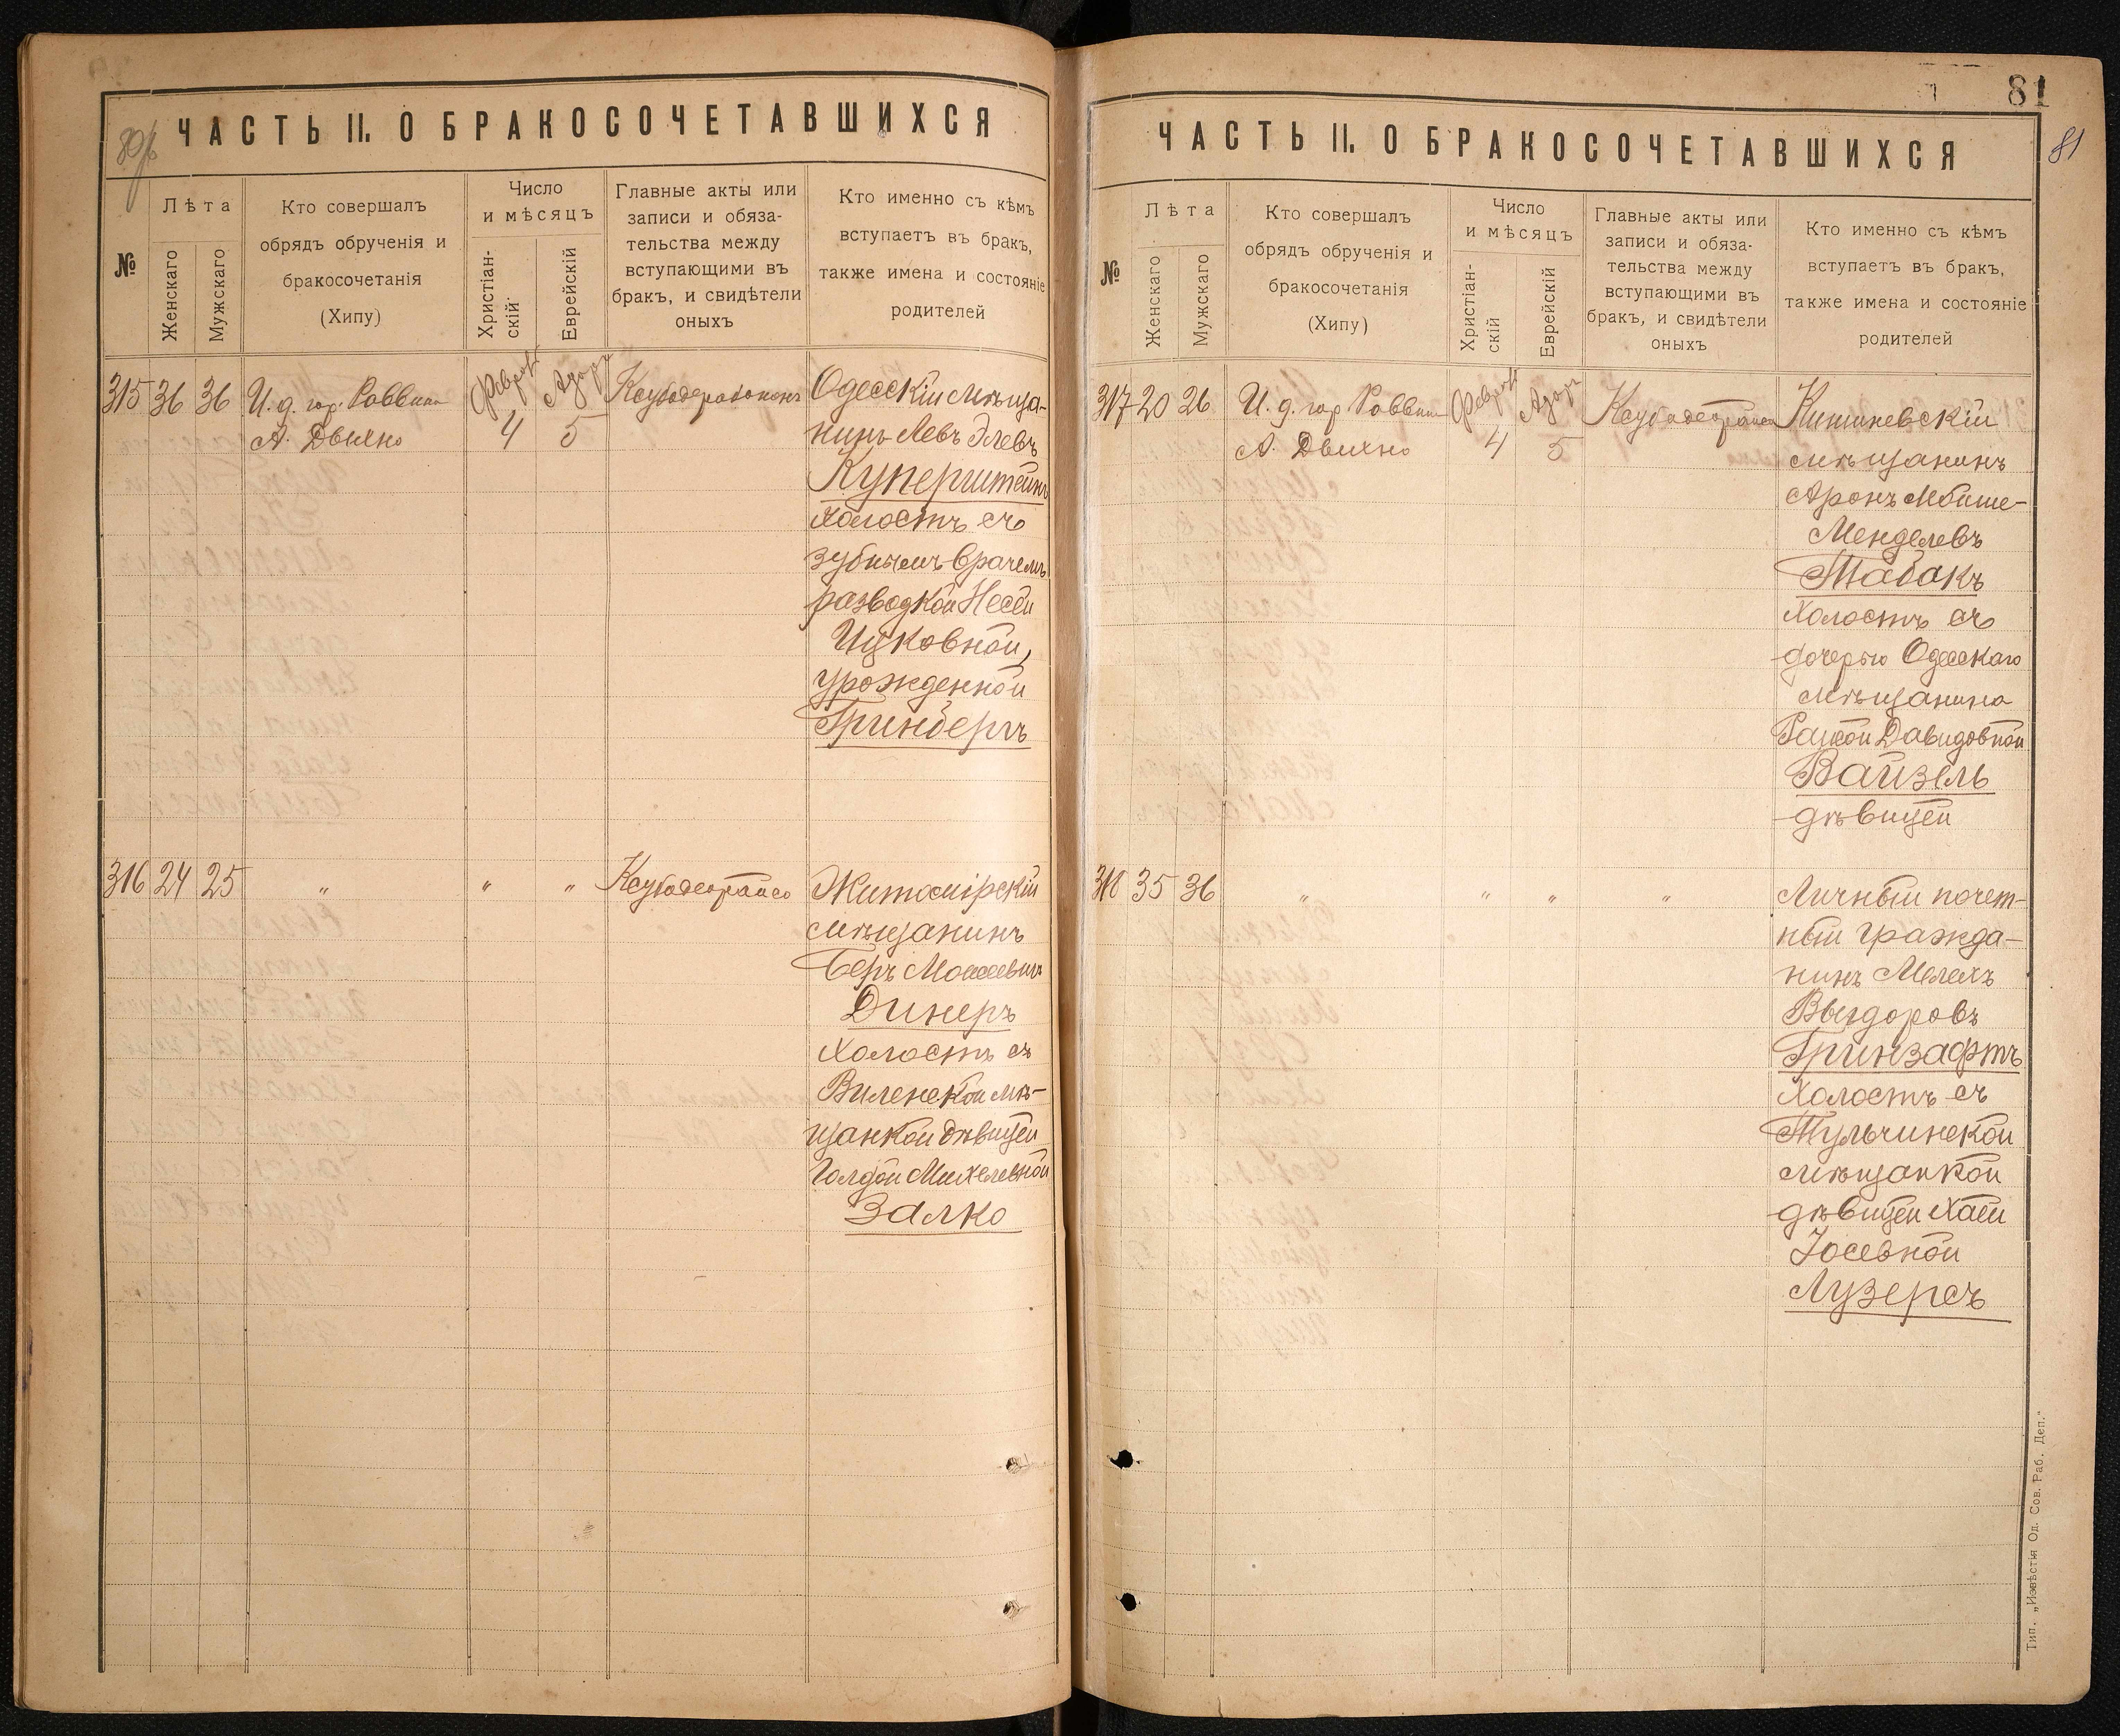 80/б
ЧАСТЬ II. О БРАКОСОЧЕТАВШИХСЯ
№
Лѣта
Женскаго
Мужскаго
Кто совершалъ
обрядъ обрученія и
бракосочетанія
(Хипу)
Число
и мѣсяцъ
Христіан-
скій
Еврейскій
Главные акты или
записи и обяза-
тельства между
вступающими въ
бракъ, и свидѣтели
оныхъ
Кто именно съ кѣмъ
вступаетъ въ бракъ,
также имена и состояніе
родителей
315 36 36 И. д. гор. Раввина
А. Двилно
Феврал
4
Адаръ
5
Одесскій мѣща-
нинъ Левъ Элевъ
Куперштейнъ
холостъ съ
зубнымъ врачемъ
разводкой Несей
Ицковной,
урожденной
Гринбергъ
316 24 25 " " " Ксубодеорайсо
Житомірскій
мѣщанинъ
Беръ Моисеевичъ
Динеръ
холостъ съ
Виленской мѣ-
щанкой дѣвицей
Голдой Михелевной
Залко
81
81
ЧАСТЬ II. О БРАКОСОЧЕТАВШИХСЯ
№
Лѣта
Женскаго
Мужскаго
Кто совершалъ
обрядъ обрученія и
бракосочетанія
(Хипу)
Число
и мѣсяцъ
Христіан-
скій
Еврейскій
Главные акты или
записи и обяза-
тельства между
вступающими въ
бракъ, и свидѣтели
оныхъ
Кто именно съ кѣмъ
вступаетъ въ бракъ,
также имена и состояніе
родителей
317 20 26 И. д. гор Раввина
А. Двилно
Феврал
4
Адаръ
5
Ксубодеорайсо
Кишиневскій
мѣщанинъ
Аронъ Мойше-
Менделевъ
Табакъ
холостъ съ
дочерью Одесскаго
мѣщанина
Давидовной
Вайзель
дѣвицей
318 35 36 " " " "
Личный почет-
ный гражда-
нинъ Мелехъ
Выгдоровъ
Гринзафтъ
холостъ съ
Тульчинской
мѣщанкой
дѣвицей Хаей
Іосевной
Лузерсъ
Тип. „Извѣстія Од. Сов. Раб. Деп."